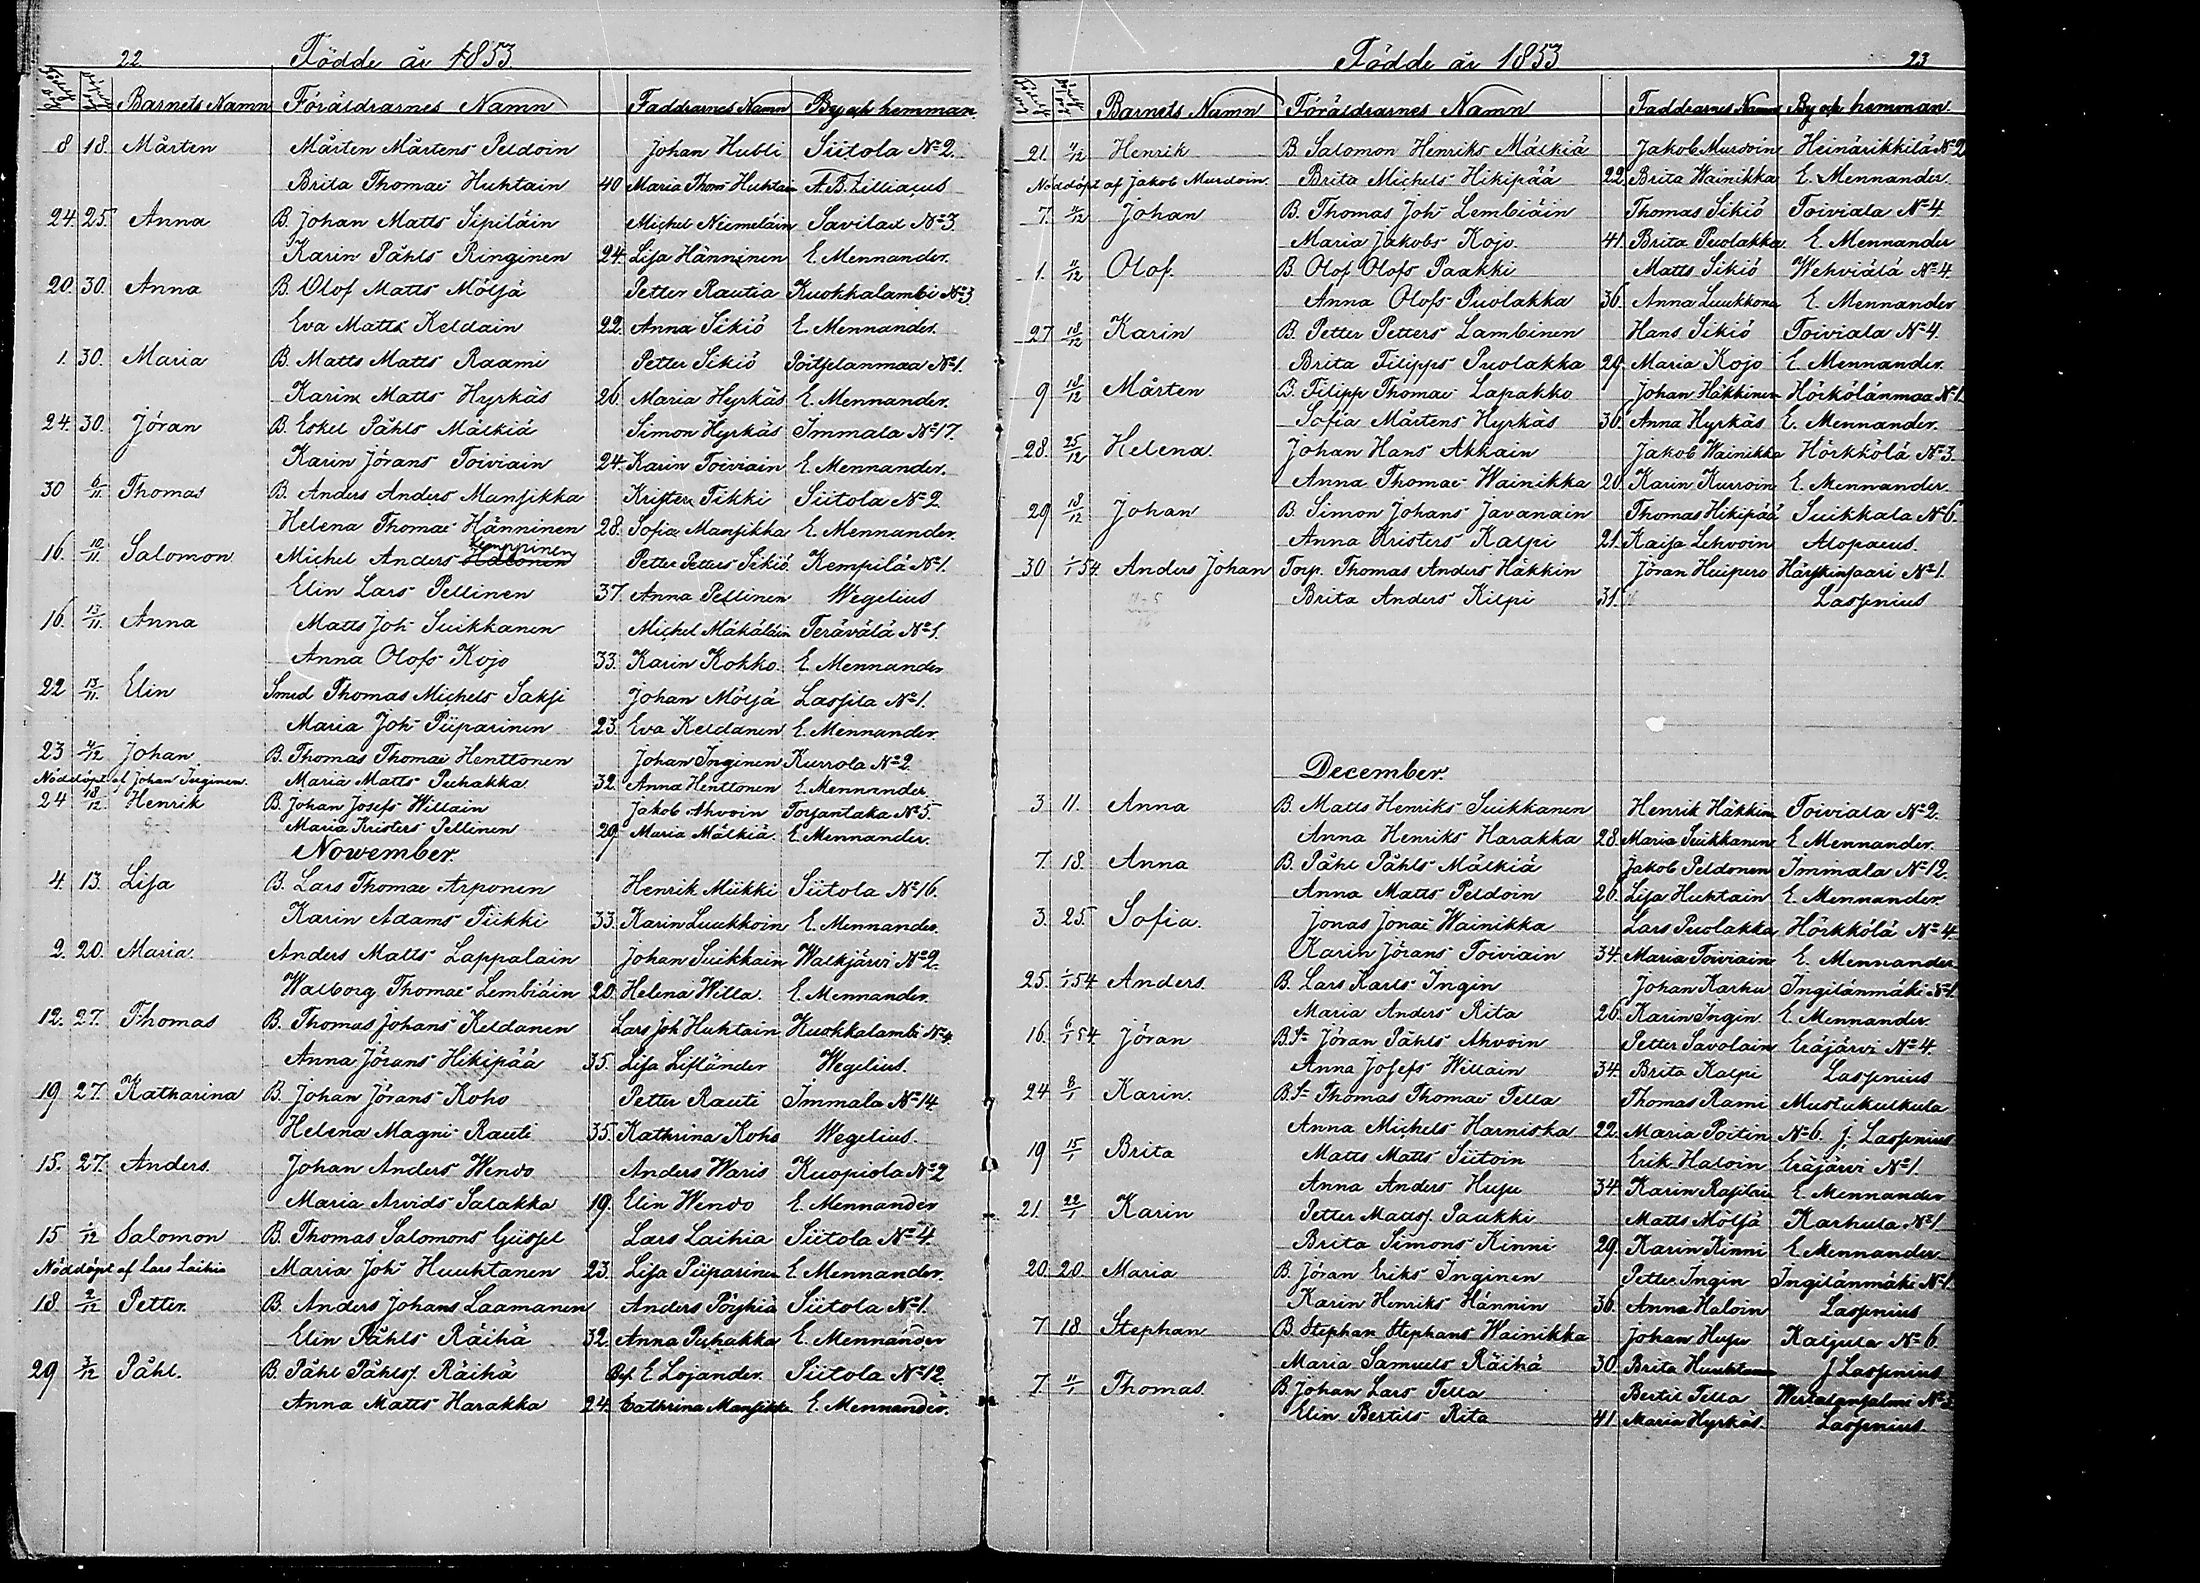 22 Födde år 1853
Barnets Namn Föräldrarnes Namn Faddrarnes Namn By och hemman.
8 18. Mårten Mårten Mårtens Peldoin Johan Hubli Siitola No 2.
Brita Thomae Huhtain 40 Maria Thom Huhtain A. B. Lilliacus
24. 25. Anna B. Johan Matts Sipiläin Michel Niemeläin Savilax No 3.
Karin Påhls Ringinen 24. Lisa Hänninen E. Mennander.
20. 30. Anna B. Olof Matts Möljä Petter Rautia Kuokkalambi No 3.
Eva Matts Keldain 22. Anna Sikiö E. Mennander.
1. 30. Maria B. Matts Matts Raami Petter Sikiö Poitjelanmaa No 1.
Karin Matts Hyrkäs 26. Maria Hyrkäs E. Mennander.
24. 30. Jöran B. Eskel Påhls Mälkiä Simon Hyrkäs Immala No 17.
Karin Jörans Toiviain 24. Karin Toiviain E. Mennander.
30 6/11 Thomas B. Anders Anders Mansikka Krister Tikki Siitola No 2
Helena Thomae Hänninen 28. Sofia Mansikka E. Mennander.
Kemppinen
16. 10/11 Salomon Michel Anders Petter Petters Sikiö Kempilä No 1.
Elin Lars Pellinen 37. Anna Pellinen Wegelius
16. 13/11. Anna Matts Joh Suikkanen Michel Mäkäläin Terävälä No 1.
Anna Olofs Kojo 33. Karin Kokko E. Mennander
22 13/11. Elin Smed Thomas Michels Saksi Johan Möljä Lassila No 1.
Maria Joh Piiparinen 23. Eva Keldanen E. Mennander.
23 4/12 Johan B. Thomas Thomae Henttonen Johan Inginen Kurrola No 2.
Nöddöpt af Johan Inginen. Maria Matts Puhakka 32. Anna Henttonen E. Mennander
24 18/12. Henrik B. Johan Josefs Willain Jakob Ahvoin Torjantaka No 5.
Maria Kristers Pellinen 29. Maria Mälkiä. E. Mennander.
November.
4. 13. Lisa B. Lars Thomae Arponen Henrik Miikki Siitola No 16.
Karin Adams Tiikki 33. Karin Luukkoin E. Mennander.
2. 20. Maria. Anders Matts Lappalain Johan Suikkain Walkjärvi No 2.
Walborg Thomae Lembiäin 20. Helena Willa. E. Mennander.
12. 27. Thomas B. Thomas Johans Keldanen Lars Joh Huhtain Kuokkalambi No 4.
Anna Jörans Hikipää 35. Lisa Lifländer Wegelius.
19 27. Katharina B. Johan Jörans Koho Petter Rauti Immala No 14.
Helena Magni Rauti 35. Kathrina Koho Wegelius.
15. 27. Anders. Johan Anders Wendo Anders Waris Kuopiola No 2
Maria Arvids Salakka 19. Elin Wendo E. Mennander
15 1/12 Salomon B. Thomas Salomons Lars Laihia Siitola No 4.
Nöddöpt af Lars Laihia Maria Joh Huuhtanen 23. Lisa Piiparinen E. Mennander.
18. 2/12 Petter. B. Anders Johans Laamanen Anders Pöyhiä Siitola No 1.
Elin Påhls Räihä 32. Anna Puhakka E. Mennander
29 3/12 Påhl. B. Påhl Påhls. Räihä E. Lojander. Siitola No 12.
Anna Matts Harakka 24. Cathrina Mansikka E. Mennander.
Födde år 1853 23
Barnets Namn Föräldrarnes Namn Faddrarnes Namn By och hemman
21. 4/12 Henrik B. Salomon Henriks Mälkiä Jakob Murdoin Heinärikkilä No 2
Nöddöpt af Jakob Murdoin. Brita Michels Hikipää 22 Brita Wainikka E. Mennander.
7. 4/12 Johan B. Thomas Joh Lembiäin Thomas Sikiö Toiviala No 4.
Maria Jakobs Kojo 41. Brita Puolakka E. Mennander
1. 11/12 Olof. B. Olof Olofs Paakki Matts Sikiö Wehviälä No 4.
Anna Olofs Puolakka 36. Anna Luukkonen E. Mennander
27 18/12 Karin B. Petter Petters Lambinen Hans Sikiö Toiviala No 4.
Brita Filipps Puolakka 29. Maria Kojo E. Mennander.
9 18/12 Mårten B. Filipp Thomae Lapakko Johan Häkkinen Hörkölänmaa No 1.
Sofia Mårtens Hyrkäs 36. Anna Hyrkäs E. Mennander.
28. 25/12 Helena. Johan Hans Akkain Jakob Wainikka Hörkkölä No 3.
Anna Thomae Wainikka 20. Karin Kurroin E. Mennander.
29 18/12 Johan B. Simon Johans Javanain Thomas Hikipää Suikkala No 6.
Anna Kristers Kalpi 21. Kaisa Lehvoin Alopaeus.
30 1/1 54. Anders Johan Torp. Thomas Anders Häkkin Jöran Huipero Härskinsaari No 1.
Brita Anders Kilpi 31. Laspenius
December.
3 11. Anna B. Matts Henriks Suikkanen Henrik Häkkinen Toiviala No 2.
Anna Henriks Harakka 28. Maria Suikkanen E. Mennander.
7. 18. Anna B. Påhl Påhls Mälkiä Jakob Peldonen Immala No 12.
Anna Matts Peldoin 26. Lisa Huhtain E. Mennander.
3. 25. Sofia. Jonas Jonae Wainikka Lars Puolakka Hörkkölä No 4.
Karin Jörans Toiviain 34. Maria Toiviain E. Mennander
25. 1/1 54 Anders. B. Lars Karls Ingin Johan Karhu Ingilänmäki No 1.
Maria Anders Rita 26. Karin Ingin. E. Mennander.
16. 6/1 54 Jöran B. S. Jöran Påhls Ahvoin Petter Savolain Eräjärvi No 4.
Anna Josefs Willain 34. Brita Kalpi Laspenius
24 8/1 Karin. B. S. Thomas Thomae Tella Thomas Rami Mustukulkula
Anna Michels Harniska 22. Maria Poitin No 6. J. Laspenius
19 15/1 Brita Matts Matts Siitoin Erik Haloin Eräjärvi No 1.
Anna Anders Huju 34. Karin E. Mennander
21. 22/1 Karin Petter Mattss. Paakki Matts Möljä Karhula No 1.
Brita Simons Kinni 29. Karin Kinni E. Mennander
20. 20. Maria B. Jöran Eriks Inginen Petter Ingin Ingilänmäki No 1.
Karin Henriks Hännin 36. Anna Haloin Laspenius
7 18. Stephan B. Stephan Stephans Wainikka Johan Huju Kaljula No 6.
Maria Samuels Räihä 30. Brita Huuhtanen J. Laspenius
7. 11/1 Thomas. B. Johan Lars Tella Bertil Tella
Elin Bertils Rita 41. Maria Hyrkäs. Laspenius.